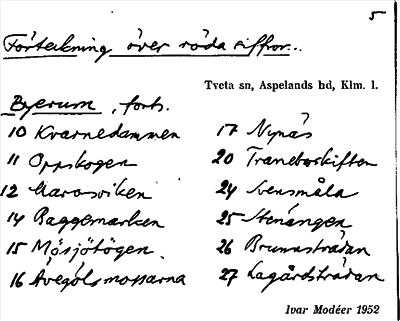 5
Förteckning över röda siffror...
Tveta sn, Aspelands hd, Klm. l.
Byerum, forts.
10 Kvarnedammen
11 Oppskogen
12
14 Baggemarken
15 Mösjötögen
16 Åvegölsmossarna
17 Nynäs
20 Traneboskiften
24 Svensmåla
25 Stenängen
26 Brunnsträdan
27 Lagårdsträdan
Ivar Modéer 1952